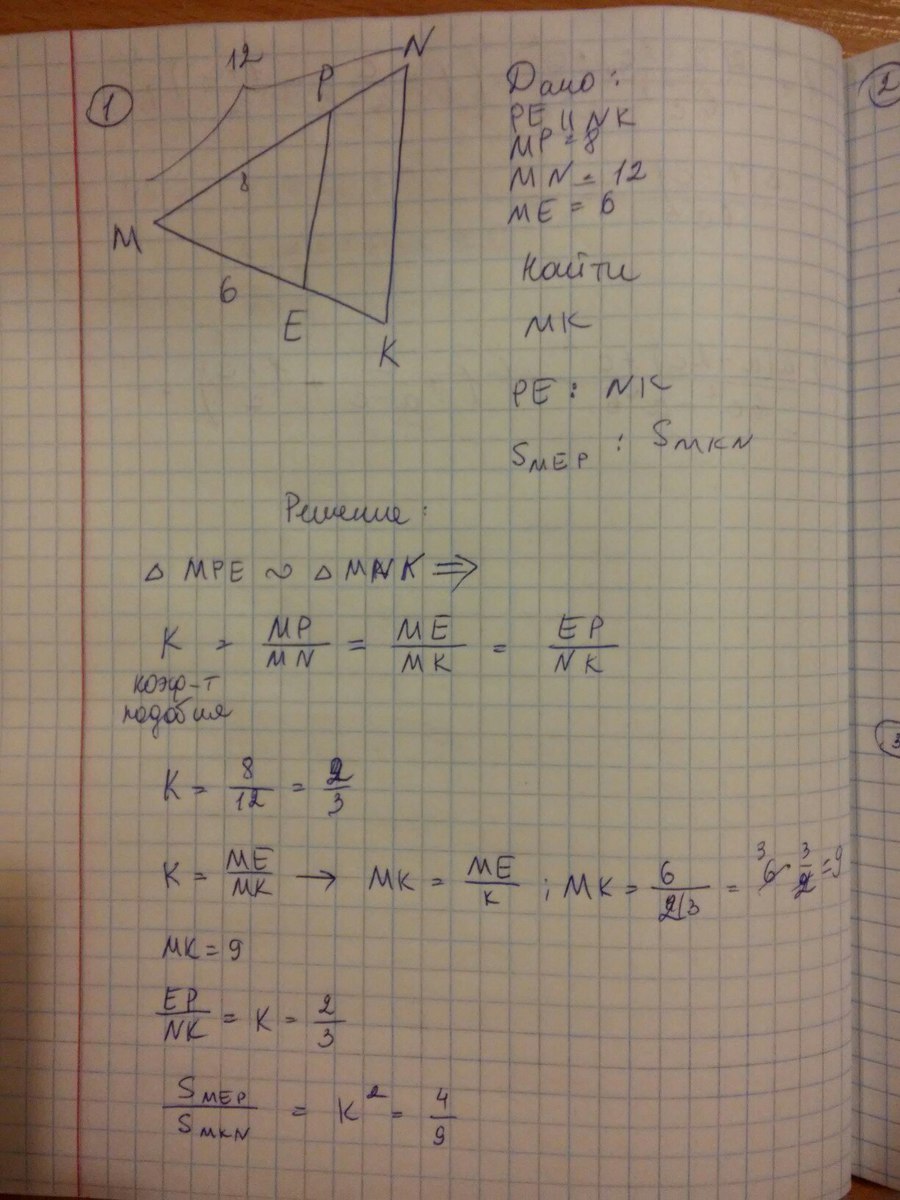 1
12
N
P
8
M
6
E
K
Дано:
PE || NK
MP = 8
MN = 12
ME = 6
Найти
MK
PE : NK
S_MEP : S_MKN
Решение:
△ MPE ∼ △ MNK ⇒
K = MP/MN = ME/MK = EP/NK
коэф-т
подобия
K = 8/12 = 2/3
K = ME/MK → MK = ME/K ; MK = 6/(2/3) = 6 · 3/2 = 9
MK = 9
EP/NK = K = 2/3
S_MEP/S_MKN = K² = 4/9
2
3